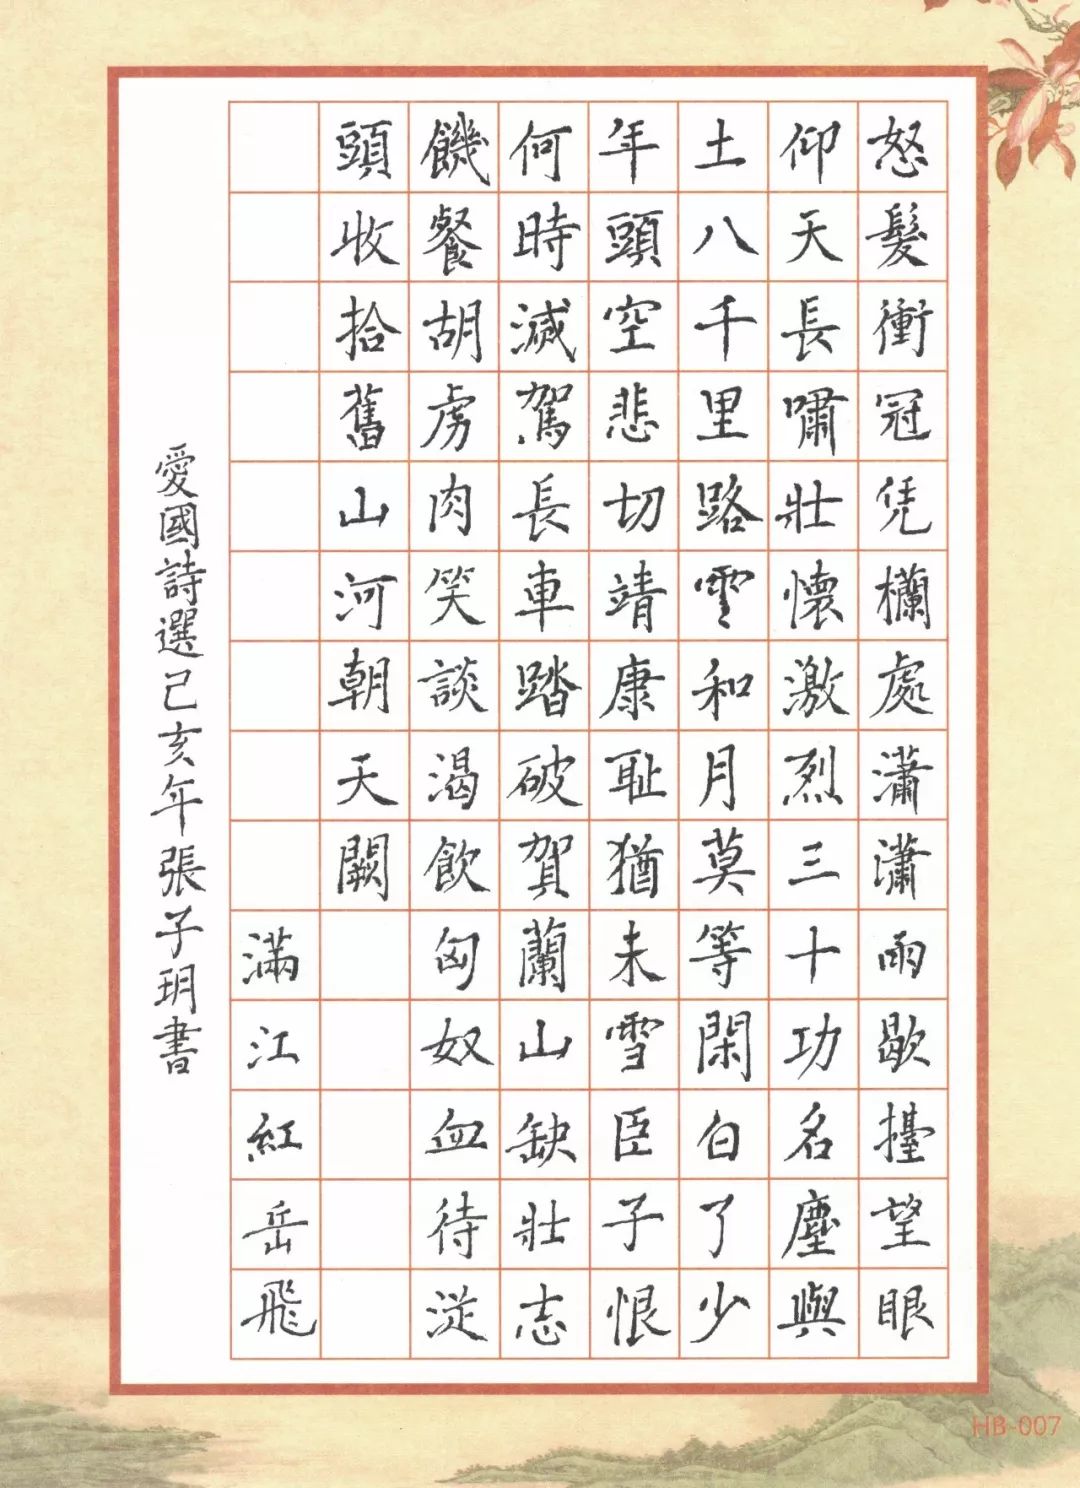 怒髮衝冠凭欄處瀟瀟雨歇擡望眼
仰天長嘯壯懷激烈三十功名塵與
土八千里路雲和月莫等閑白了少
年頭空悲切靖康耻猶未雪臣子恨
何時滅駕長車踏破賀蘭山缺壯志
饑餐胡虜肉笑談渴飲匈奴血待從
頭收拾舊山河朝天闕
滿江紅岳飛
愛國詩選己亥年張子玥書
HB-007